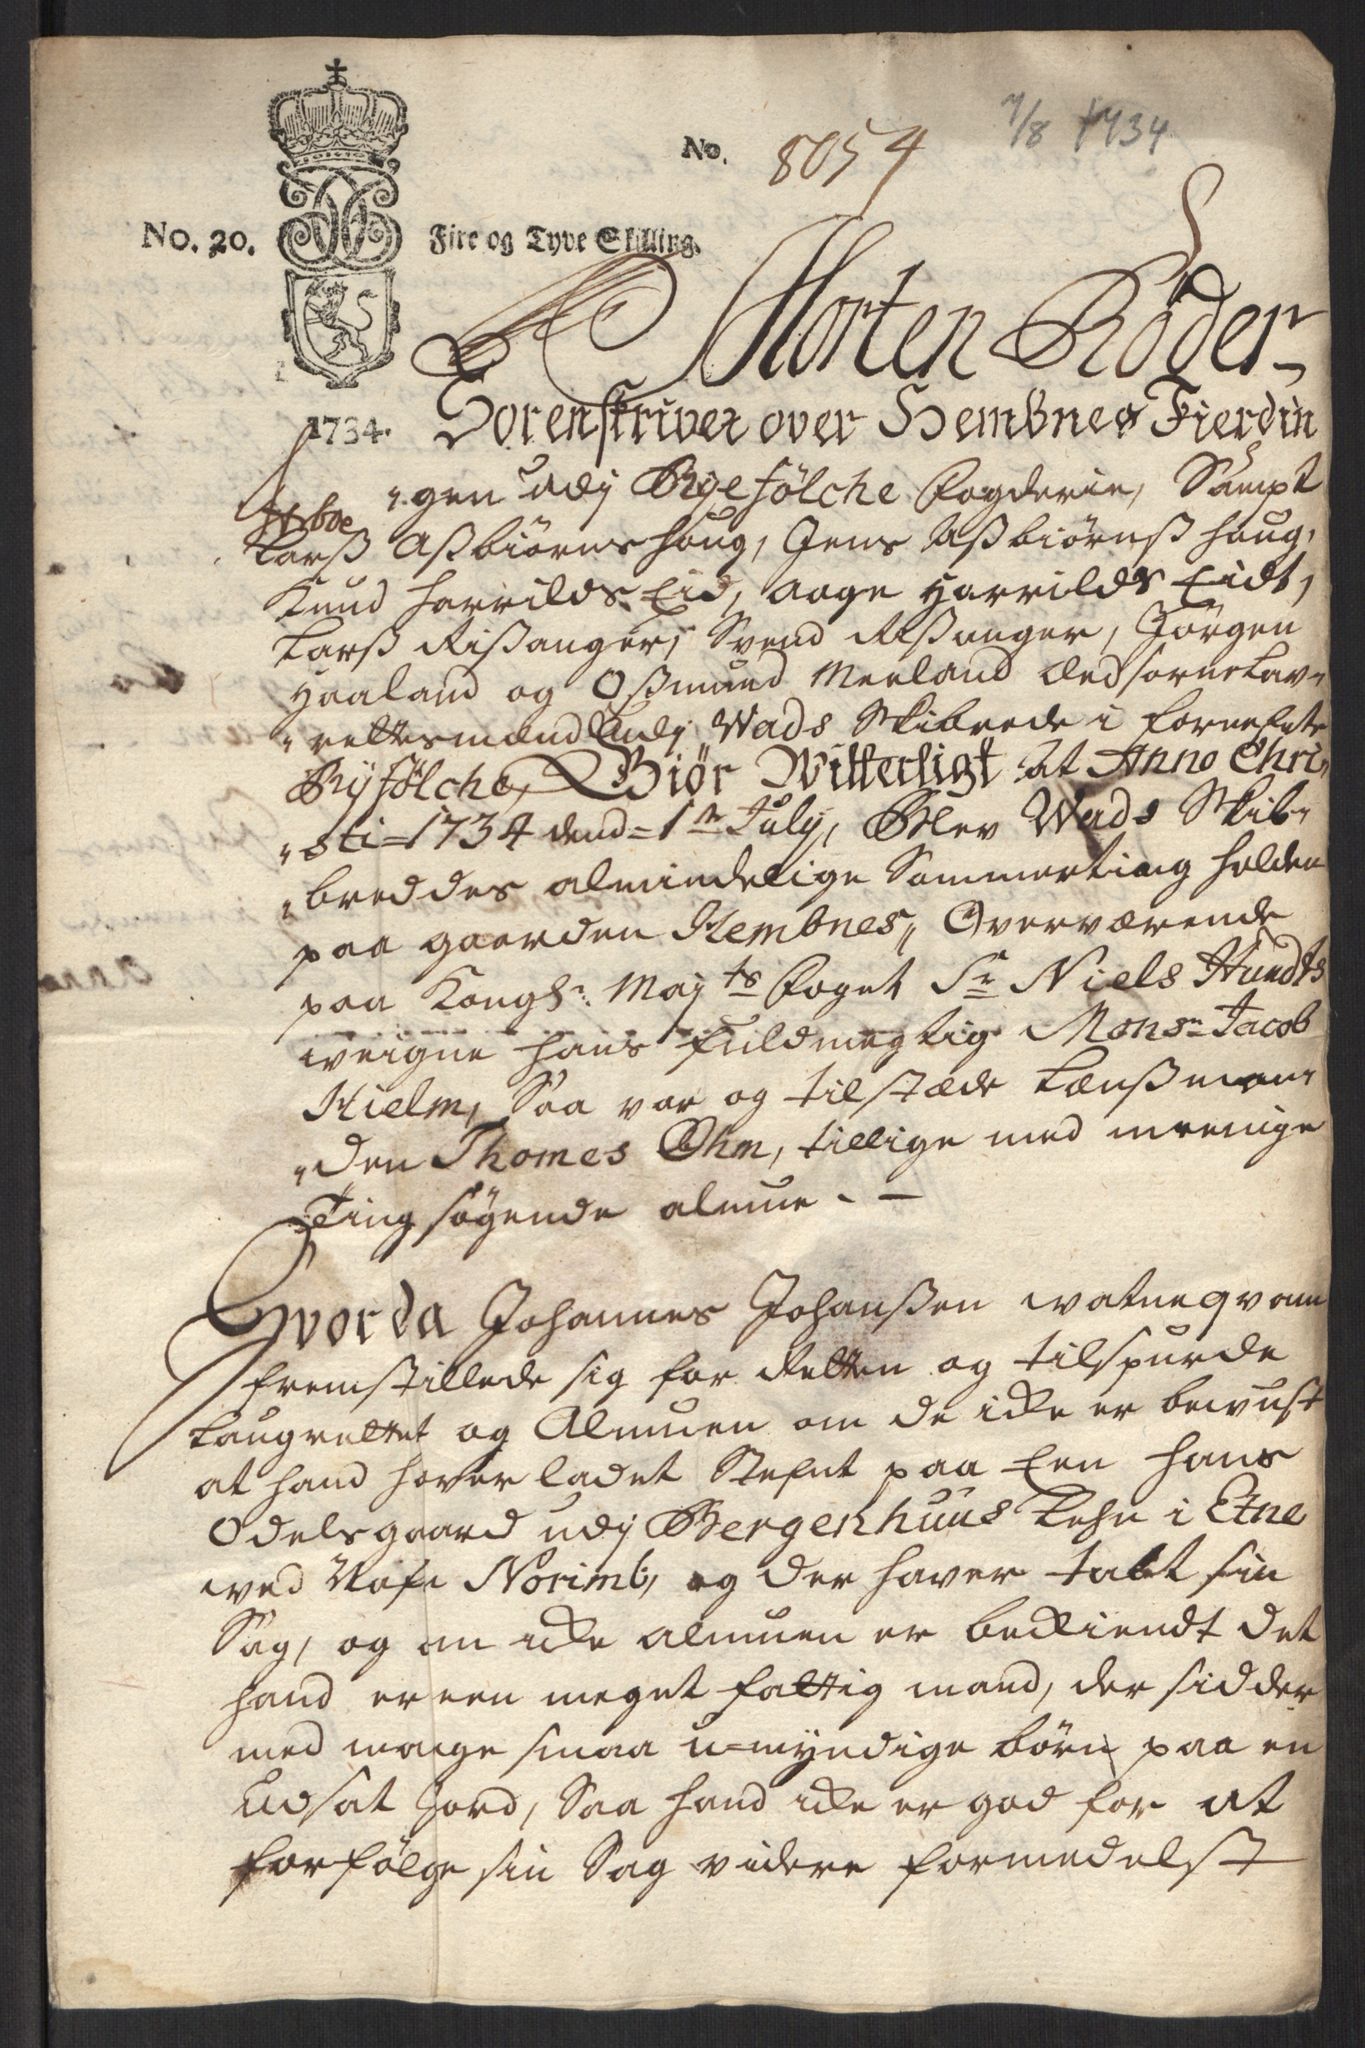 7/8 1734
No. 8054
No. 20. Fire og Tyve Skilling.
Morten Röder
1734. Sorenskriver over Hembnes Fierdin
"gen udj Ryefölche Fogderie, Sampt
Larß Aßbiørnshoug, Jens Aßbiørnßhoug,
Knud Harrilds Eid, Aage Harrilds Eidt,
Larß Rißanger, Svend Rißanger, Jörgen
Haaland og Oßmund Meeland Eedsorne Lav¬
"rettesmænd udj Wads Skibrede i fornefnte
Ryfölche, Giør Witterligt at Anno Chri
"sti=1734 dend=1te July, Blev Wads Skib¬
"breddes almindelige Sommerting holden
paa gaarden Hembnes, Overværende
paa Kongl: Mayts Foget Sr Niels Hundts
weigne hans fuldmegtig Monsr Jacob
Hielm, Saa var og tilstæde Lænßman¬
"den Thomes Ohm, tillige med meenige
Ting søgende almue - —
Hvorda Johannes Johanßen watneqvam
fremstillede sig for Retten og tilspurde
Laugrettet og Almuen om de icke er bewust
at hand hafver ladet Stefnt paa Een hans
Odelsgaard udj Bergenhuus Lehn i Etne
wed Nafn Norimb, og der haver tabt sin
Sag, og om icke almuen er beckiendt det
hand er een meget fattig mand, der sidder
med mange smaa u=myndige börn paa en
Udsat Jord, Saa hand icke er god for at
forfölge sin Sag videre formedelst